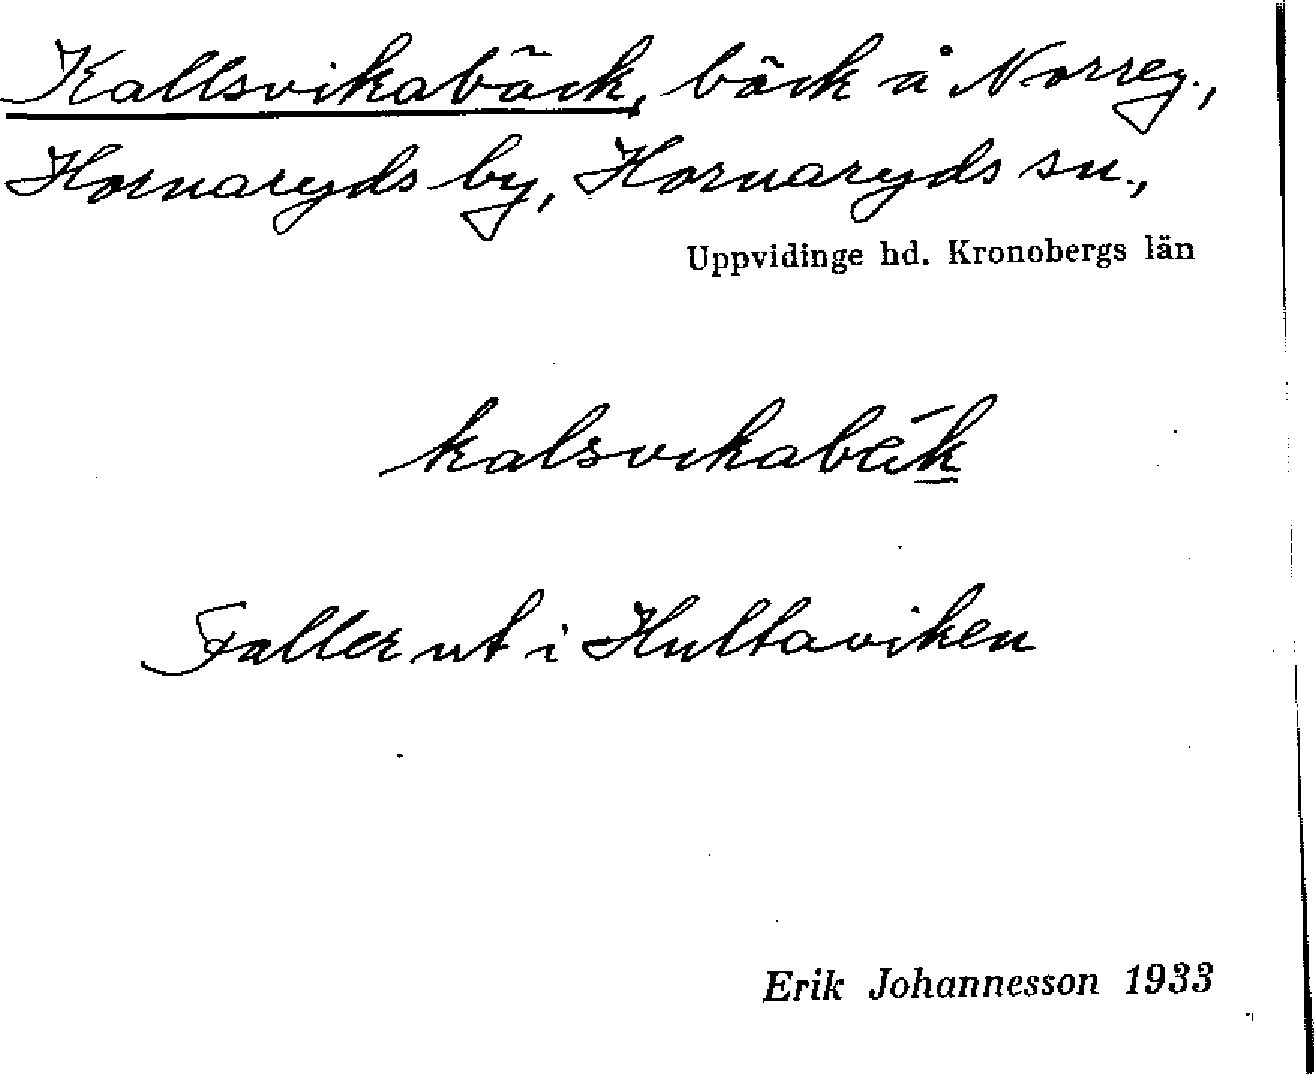 Kallsvikabäck, bäck å Norreg.,
Hornaryds by, Hornaryds sn.,
Uppvidinge hd. Kronobergs län
kalsvikabäk
Faller ut i Hultaviken
Erik Johannesson 1933